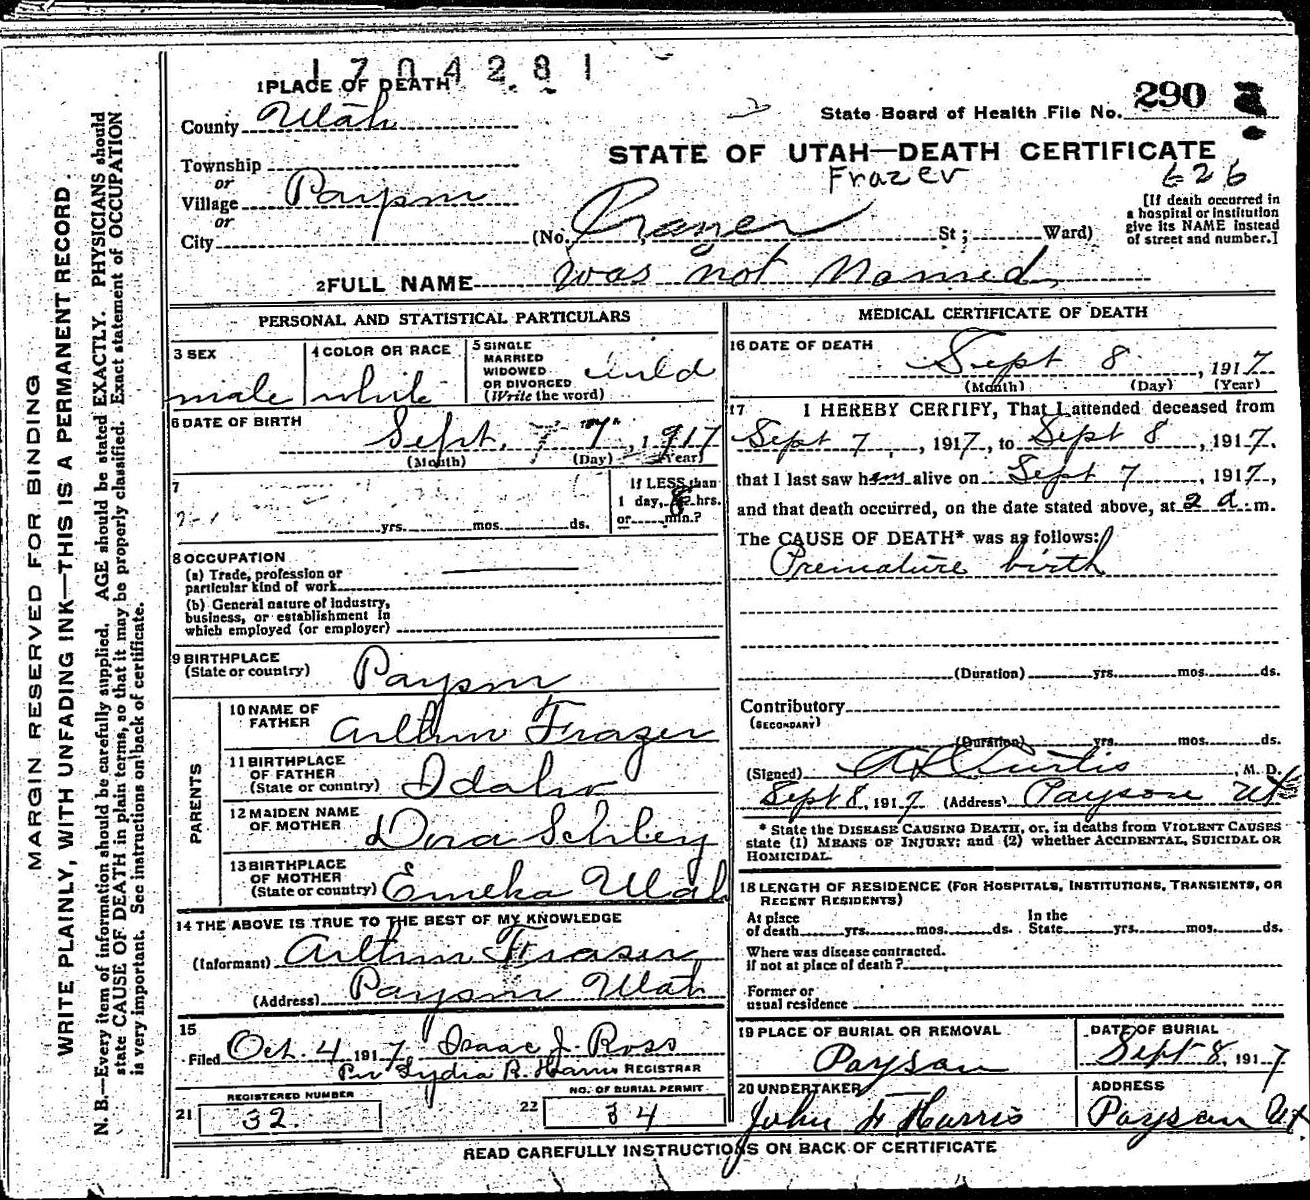 1704281
1 PLACE OF DEATH
County Utah
State Board of Health File No. 290
STATE OF UTAH—DEATH CERTIFICATE
Township
or
Village Payson
or
City
Frazer
626
[If death occurred in
a hospital or institution
give its NAME instead
of street and number.]
(No. Frazer St ; Ward)
2 FULL NAME was not Named
PERSONAL AND STATISTICAL PARTICULARS
3 SEX
male
4 COLOR OR RACE
white
5 SINGLE
MARRIED
WIDOWED
OR DIVORCED
(Write the word)
child
6 DATE OF BIRTH
Sept. 7 1917
(Month) (Day) (Year)
7
yrs. mos. ds.
If LESS than
1 day, 8 hrs.
or min.?
8 OCCUPATION
(a) Trade, profession or
particular kind of work
(b) General nature of industry,
business, or establishment in
which employed (or employer)
9 BIRTHPLACE
(State or country) Payson
PARENTS
10 NAME OF
FATHER Arthur Frazer
11 BIRTHPLACE
OF FATHER
(State or country) Idaho
12 MAIDEN NAME
OF MOTHER Dora Schley
13 BIRTHPLACE
OF MOTHER
(State or country) Eureka Utah
14 THE ABOVE IS TRUE TO THE BEST OF MY KNOWLEDGE
(Informant) Arthur Frazer
(Address) Payson Utah
15
Filed Oct. 4, 1917, Isaac J. Ross
Per Lydia R. Harris REGISTRAR
REGISTERED NUMBER
21 32.
NO. OF BURIAL PERMIT
22 34
MEDICAL CERTIFICATE OF DEATH
16 DATE OF DEATH
Sept 8, 1917
(Month) (Day) (Year)
17 I HEREBY CERTIFY, That I attended deceased from
Sept 7, 1917, to Sept 8, 1917,
that I last saw him alive on Sept 7, 1917,
and that death occurred, on the date stated above, at 2 a. m.
The CAUSE OF DEATH* was as follows:
Premature birth
(Duration) yrs. mos. ds.
Contributory
(SECONDARY)
(Duration) yrs. mos. ds.
(Signed) A L Curtis, M. D.
Sept 8, 1917 (Address) Payson Ut
* State the DISEASE CAUSING DEATH, or, in deaths from VIOLENT CAUSES
state (1) MEANS OF INJURY; and (2) whether ACCIDENTAL, SUICIDAL OR
HOMICIDAL.
18 LENGTH OF RESIDENCE (FOR HOSPITALS, INSTITUTIONS, TRANSIENTS, OR
RECENT RESIDENTS)
At place
of death yrs. mos. ds.
In the
State yrs. mos. ds.
Where was disease contracted.
if not at place of death ?
Former or
usual residence
19 PLACE OF BURIAL OR REMOVAL
Payson
DATE OF BURIAL
Sept 8, 1917
20 UNDERTAKER
John F Harris
ADDRESS
Payson Ut.
READ CAREFULLY INSTRUCTIONS ON BACK OF CERTIFICATE
MARGIN RESERVED FOR BINDING
WRITE PLAINLY, WITH UNFADING INK—THIS IS A PERMANENT RECORD.
N. B.—Every item of information should be carefully supplied. AGE should be stated EXACTLY. PHYSICIANS should
state CAUSE OF DEATH in plain terms, so that it may be properly classified. Exact statement of OCCUPATION
is very important. See instructions on back of certificate.